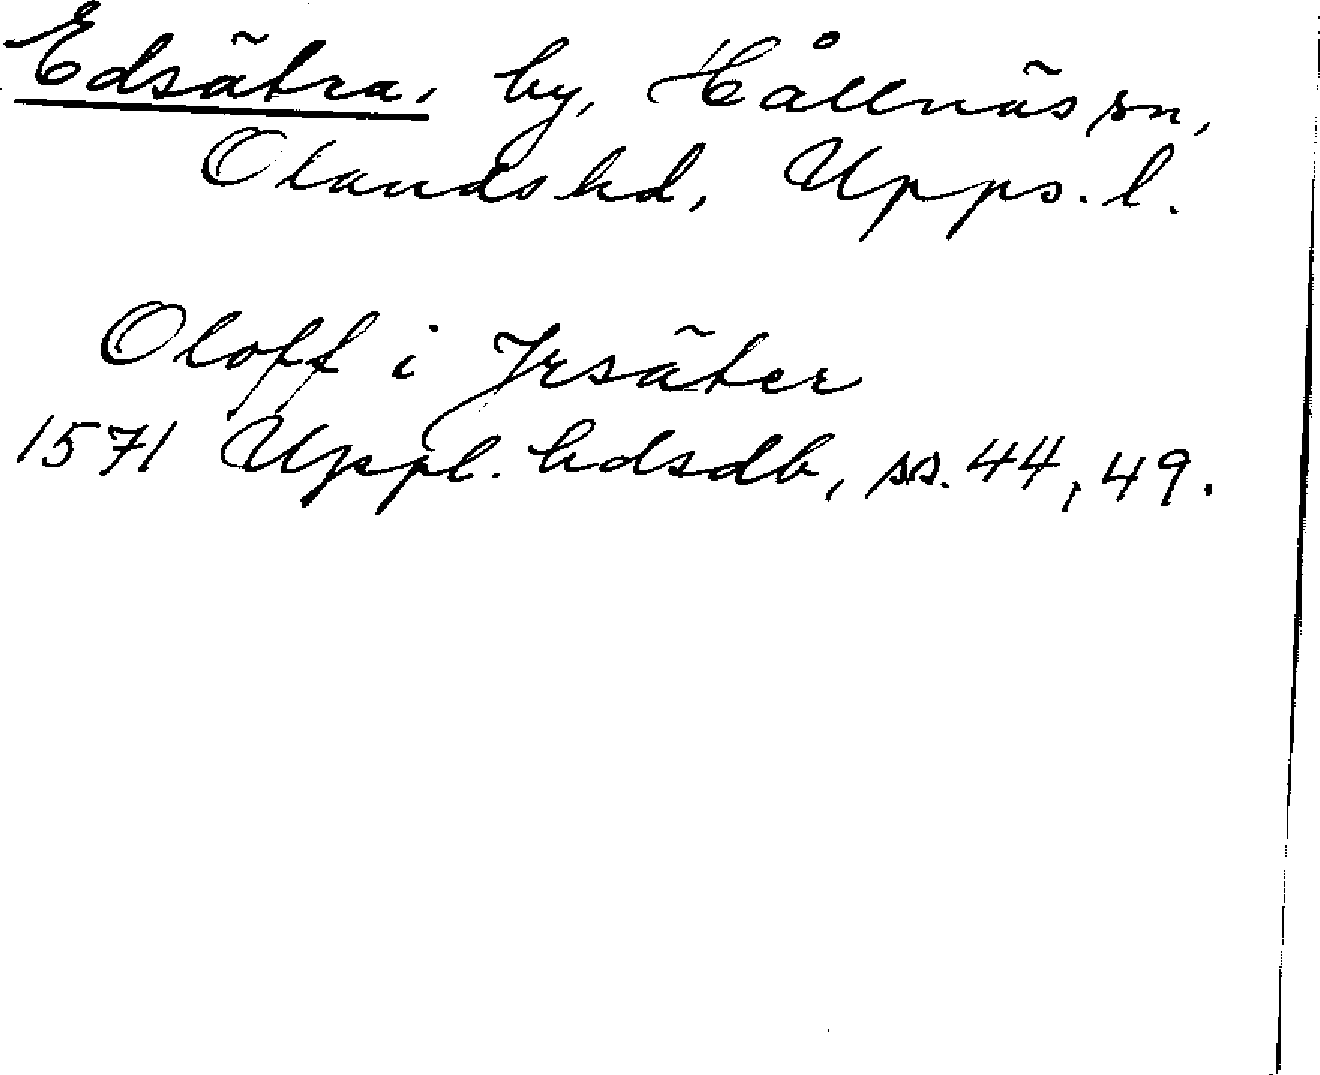 Edsätra, by, Hållnäs sn,
Olands hd, Upps. l.
Oloff i Jrsäter
1571 Uppl. hdsdb, ss. 44, 49.